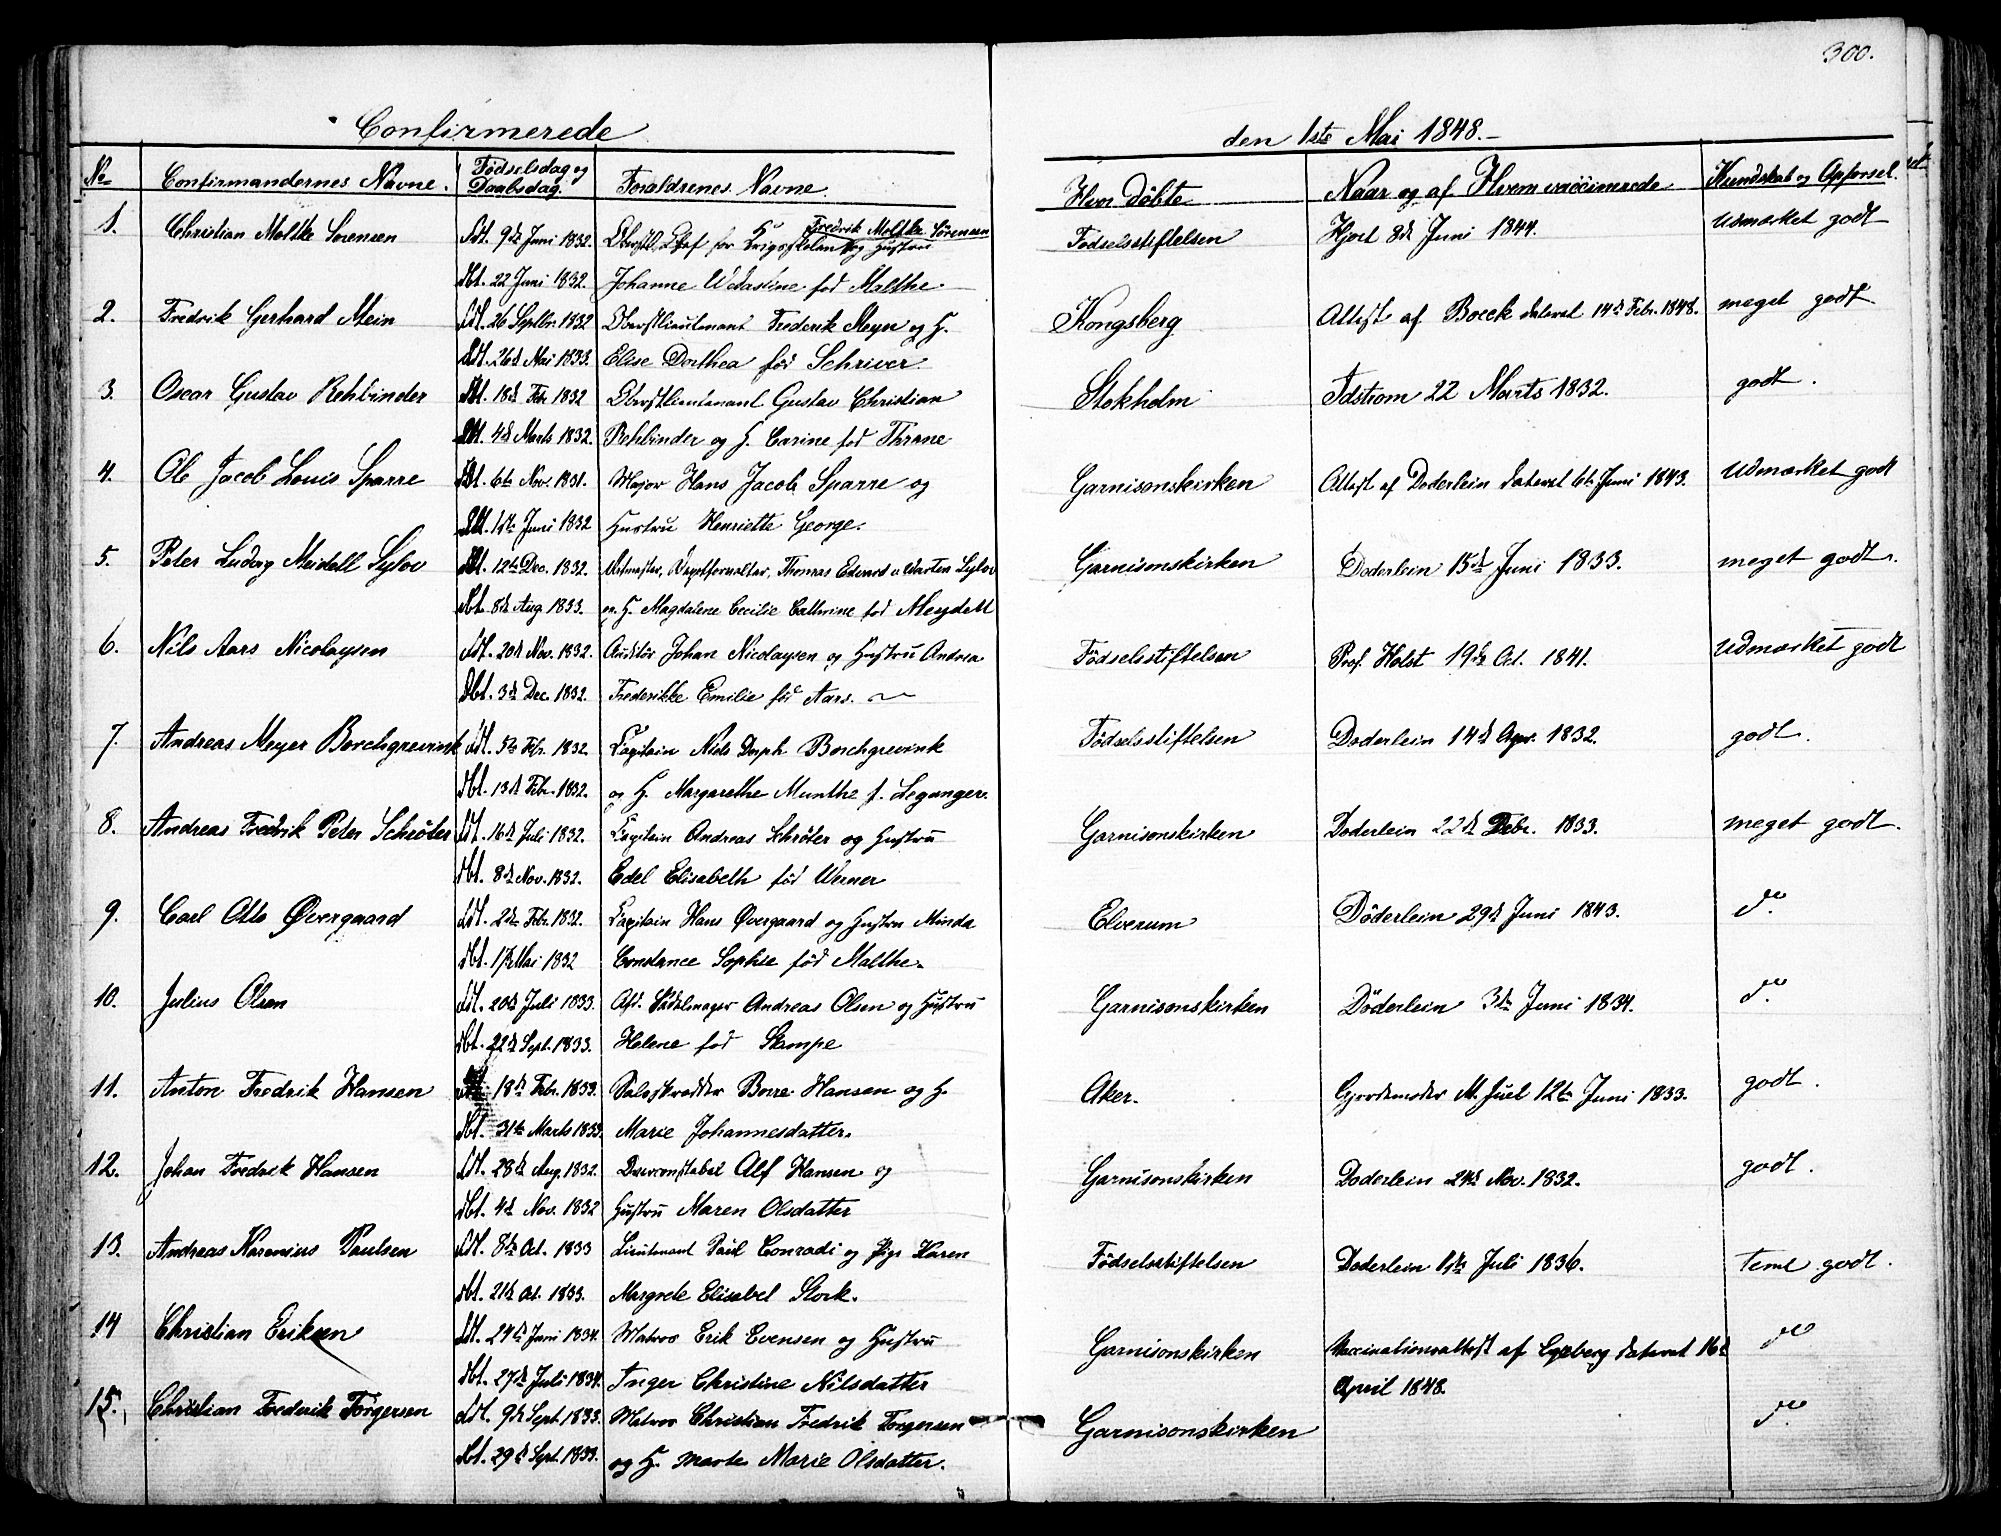 300.
Confirmerede den 1ste Mai 1848.
No Confirmandernes Navne. Fødselsdag og Daabsdag. Foraldrenes Navne. Hvor Döbte Naar og af Hvem vaccinerede Kundskab og Opforsel.
1. Christian Moltke Sorensen fdt. 9de Juni 1832. H Fredrik Moltke Sörensen og Hustru Fødselsstiftelsen Hjort 8de Juni 1844. udmærket godt
dbt. 22 Juni 1832. Johanne fod Malthe.
2. Fredrik Gerhard Mein fdt. 26 Septbr. 1832 Oberstlieutenant Frederik Meyn og H. Kongsberg Attest af Boeck dateret 14de Febr. 1848. meget godt.
26de Mai 1833. Elise Dorthea föd Schriver.
3. Oscar Gustav Rehbinder 18de Febr 1832 Oberstlieutenant Gustav Christian Stokholm 22 Marts 1832. godt.
4de Marts 1832. Rehbinder og H. Carine fod Thrane
4. Ole Jacob Louis Sparre 6te Nov. 1831. Major Hans Jacob Sparre og Garnisonskirken Attest af Doderlein dateret 6te Juni 1843. udmærket godt
1ste Juni 1832 Hustru Henriette George.
5. Peter Ludvig Meidell Sylov 12te Dec. 1832. Thomas Edvard v Sylov Garnisonskirken Doderlein 15de Juni 1833. meget godt.
dbt. 8de Aug. 1833. og H. Magdalene Cecilie Cathrine fod Meydell
6. Nils Aars Nicolaysen fdt. 20de Nov. 1832. Auditör Johan Nicolaysen og Hustru Andrea Födselsstiftelsen Prof. Holst 19de Oct. 1841. udmærket godt
dbt. 3de Dec. 1832. Frederikke Emilie föd Aars.
7. Andreas Meyer Borchgrevink fdt. 5te Febr. 1832. Capitain Niels Borchgrevink Födselsstiftelsen Doderlein 14de Apr. 1832. godt.
dbt. 13de Febr. 1832. og H. Margarethe Munthe f. Leganger.
8. Andreas Fredrik Peter Schröter fdt. 16de Juli 1832. Capitain Andreas Schröter og Hustru Garnisonskirken Doderlein 22de Febr. 1833. meget godt.
dbt. 8de Nov. 1832. Edel Elisabeth föd Werner
9. Carl Otto Øvergaard fdt. 2den Febr. 1832. Capitain Hans Øvergaard og Hustru Minda Elverum Döderlein 29de Juni 1843. do.
dbt. 17 Mai 1832 Constance Sophie föd Malthe.
10. Julius Olsen fdt. 20de Juli 1833. Afd. Sadelmager Andreas Olsen og Hustru Garnisonskirken Döderlein 3de Juni 1834. do.
dbt. 22de Sept. 1833. Helene fod Stampe
11. Anton Fredrik Hansen 18de Febr. 1833. Hansen og H. Aker. Gjordemoder M. Juel 12te Juni 1833. godt.
dbt. 31te Marts 1833. Marie Johannesdatter.
12. Johan Fredrik Hansen fdt. 28de Aug. 1832. Alf Hansen og Garnisonskirken Doderlein 24de Nov. 1832. godt.
dbt. 4de Nov. 1832 Hustru Maren Olsdatter
13. Andreas Narenius Paulsen fdt. 8de Oct. 1833 Lieutenant Paul Conradi og Pige Karen Födselsstiftelsen Doderlein 1ste Juli 1836. teml godt.
dbt. 21de Oct. 1833. Margrete Elisabet Stork.
14 Christian Eriksen fdt. 24de Juni 1834. Matros Erik Evensen og Hustru Garnisonskirken Vaccinationsattest af dateret 16de April 1848. do
dbt. 27de Juli 1834. Inger Christine Nilsdatter
15. Christian Frederik Törgersen fdt. 9de Sept. 1833. Matros Christian Fredrik Torgersen Garnisonskirken do.
dbt. 29de Sept. 1833. og H. Marte Marie Olsdatter.